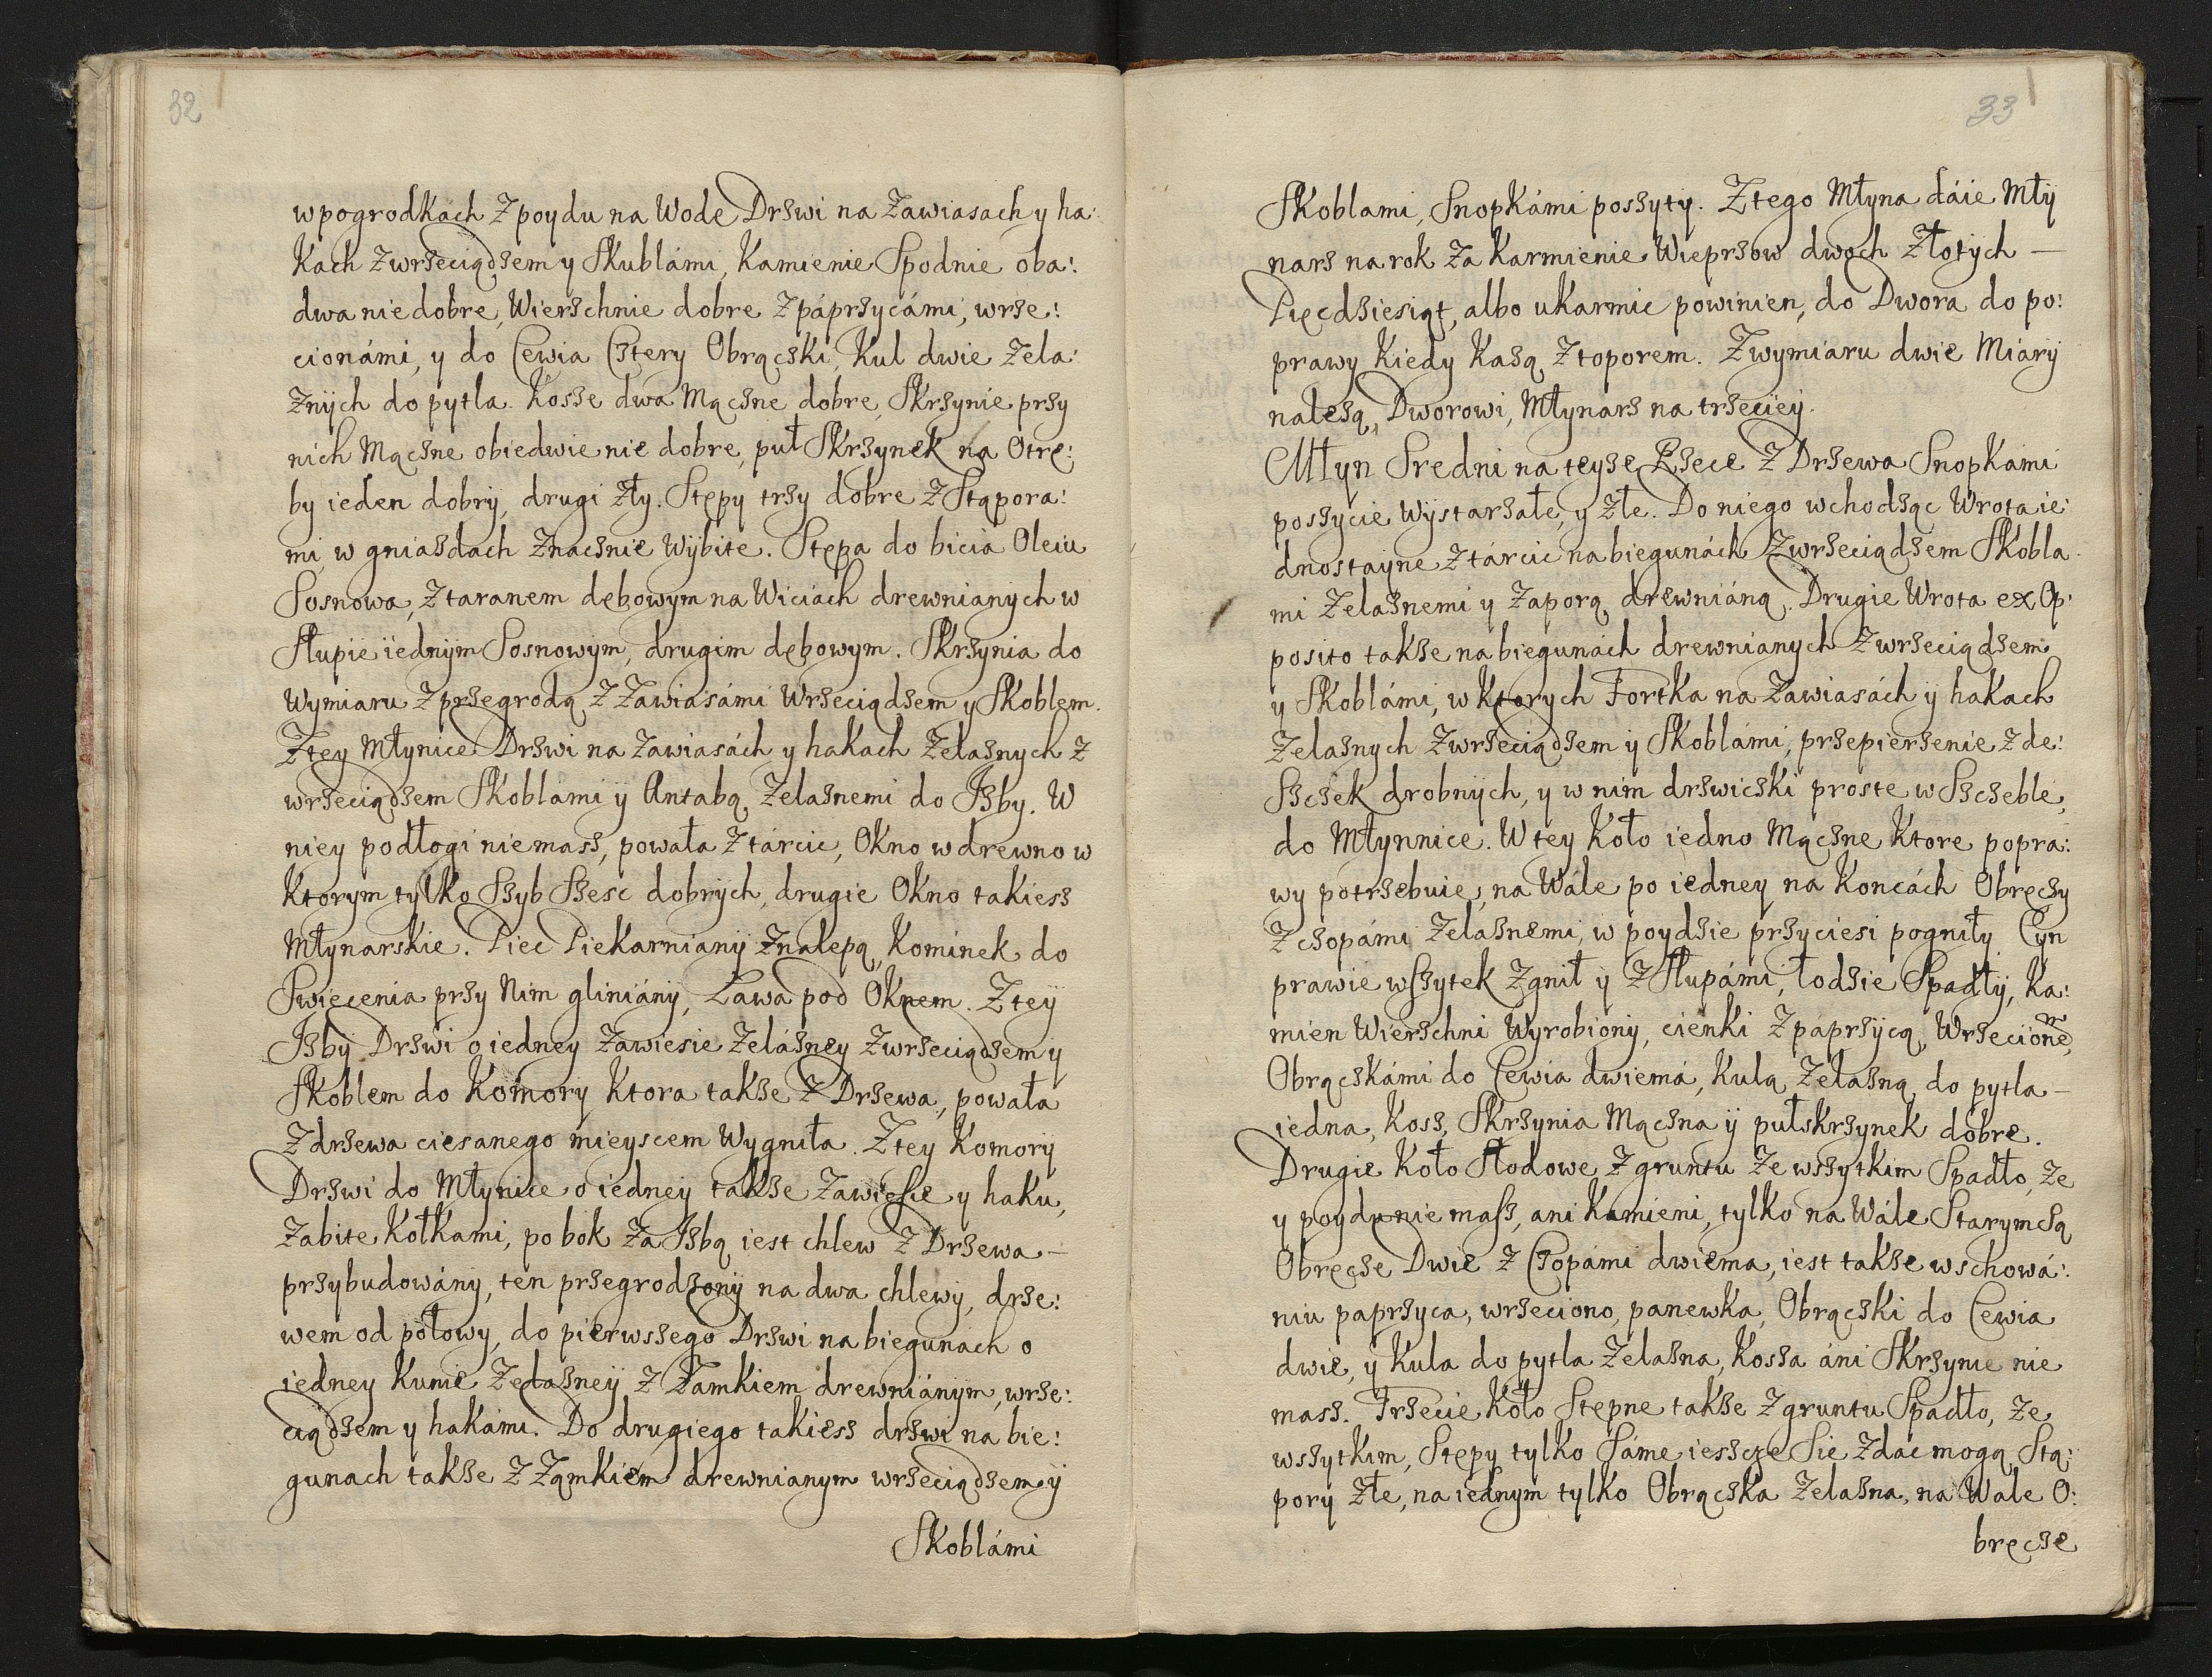 32
w pogrodkach Z poydu na Wode Drzwi na Zawiasach y ha:
Kach Z wrzeciądzem y Skublámi, Kamienie Spodnie oba:
dwa nie dobre, Wierzchnie dobre Z páprzycámi, wrze:
cionámi, y do Cewia Cztery Obrączki, Kul dwie Zela:
Znych do pytla. Kosze dwa Mączne dobre, Skrzynie przy
nich Mączne obiedwie nie dobre, puł Skrzynek na Otrę:
by ieden dobry, drugi Zły. Stępy trzy dobre Z Stąpora:
mi, w gniazdach Znacznie Wybite. Stępa do bicia Oleiu
Sosnowa, Z taranem dębowym na Wiciach drewnianych w
Słupie iednym Sosnowym, drugim dębowym. Skrzynia do
Wymiaru Z przegrodą Z Zawiasámi Wrzeciądzem y Skoblem.
Z tey Młynice Drzwi na Zawiasách y hakach Zelaznych Z
wrzeciądzem Skoblami y Antabą Zelaznemi do Izby. W
niey podłogi niemasz, powała Z tárcic, Okno w drewno w
Ktorym tylko Szyb Szesc dobrych, drugie Okno takiesz
Młynarskie. Piec Piekarniany Z nalepą, Kominek do
Swięcenia przy Nim gliniány, Ława pod Oknem. Z tey
Izby Drzwi o iedney Zawiesie Zelázney Z wrzeciądzem y
Skoblem do Komory Ktora takze Z Drzewa, powała
Z drzewa ciesanego mieyscem Wygniła. Z tey Komory
Drzwi do Młynice o iedney takze Zawiesie y haku,
Zabite Kołkami, po bok Za Izbą iest chlew Z Drzewa –
przybudowány, ten przegrodzony na dwa chlewy, drze:
wem od połowy, do pierwszego Drzwi na biegunach o
iedney Kunie Zelazney Z Zamkiem drewniánym, wrze:
ciądzem y hakámi. Do drugiego takiesz drzwi na bie:
gunach takze Z Zamkiem drewnianym wrzeciądzem y
Skoblámi
33
Skoblami, Snopkámi poszyty. Z tego Młyna dáie Mły
narz na rok Za Karmienie Wieprzow dwoch Złotych –
Pięcdziesiąt, albo ukarmic powinien, do Dwora do po:
prawy Kiedy Każą Z toporem. Z wymiaru dwie Miary
nalezą Dworowi, Młynarz na trzeciey.
Młyn Sredni na teyze Rzece Z Drzewa Snopkami
poszycie Wystarzałe, y Złe. Do niego wchodząc Wrota ie:
dnostayne Z tárcic na biegunách Z wrzeciądzem Skobla
mi Zelaznemi y Zaporą drewniáną. Drugie Wrota ex Op:
posito takze na biegunách drewnianych Z wrzeciądzem
y Skoblámi, w Ktorych Fortka na Zawiasách y hakach
Zelaznych Z wrzeciądzem y Skoblámi, przepierzenie Z de:
Szczek drobnych, y w nim drzwiczki proste w Szczeble,
do Młynnice. W tey Koło iedno Mączne Ktore popra:
wy potrzebuie, na Wále po iedney na Koncách Obręczy
Z czopámi Zelaznemi, w poydzie przyciesi pogniły Cyn
prawie wszytek Zgnił y Z Słupámi, łodzie Spadły, Ka:
mien Wierzchni Wyrobiony, cienki Z paprzycą, Wrzecionem,
Obrączkámi do Cewia dwiemá, Kulą Zelazną do pytla –
iedna, Kosz, Skrzynia Mączna y pułskrzynek dobre.
Drugie Koło Słodowe Z gruntu Ze wszytkim Spadło, Ze
y poydu nie masz, ani Kamieni, tylko na Wále Starym są
Obręcze Dwie Z Czopámi dwiema, iest takze w schowá:
niu paprzyca, wrzeciono, panewka, Obrączki do Cewia
dwie, y Kula do pytla Zelazna, Kosza áni Skrzynie nie
masz. Trzecie Koło Stępne takze Z gruntu Spadło, Ze
wszytkim, Stępy tylko Sáme ieszcze Sie Zdác mogą Stą:
pory Złe, na iednym tylko Obrączka Zelazna, na Wale O:
bręcze